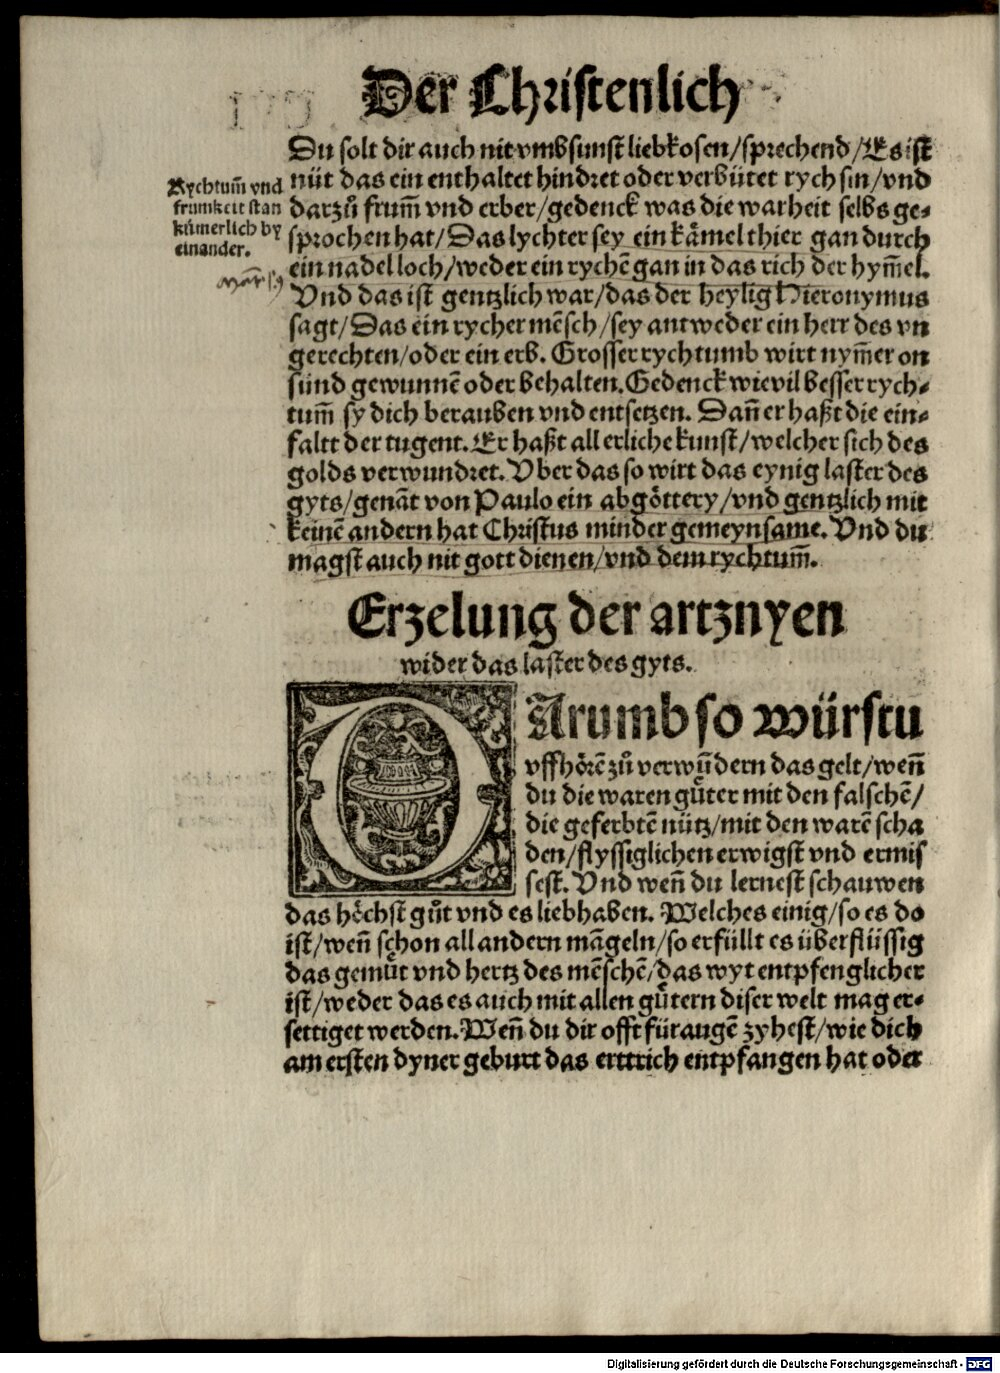 Der Christenlich
Du solt dir auch nit vmbsunst liebkosen/sprechend/Es ist
nüt das ein enthaltet hindret oder verbütet rych sin/vnd
darzů frum̃ vnd erber/gedenck was die warheit selbs ge⸗
sprochen hat/Das lychter sey ein kämelthier gan durch
ein nadelloch/weder ein rychẽ gan in das rich der hym̃el.
Vnd das ist gentzlich war/das der heylig Hieronymus
sagt/Das ein rycher mẽsch/sey antweder ein herr des vn
gerechten/oder ein erb. Grosser rychtumb wirt nym̃er on
sünd gewunnẽ oder behalten. Gedenck wievil besser rych⸗
tum̃ sy dich berauben vnd entsetzen. Dañ er haßt die ein⸗
faltt der tugent. Er haßt all erliche kunst/welcher sich des
golds verwundret. Vber das so wirt das eynig laster des
gyts/genãt von Paulo ein abgöttery/vnd gentzlich mit
keinẽ andern hat Christus minder gemeynsame. Vnd du
magst auch nit gott dienen/vnd dem rychtum̃.
Rychtum̃ vnd
frumkeit stan
kümerlich by
einander.
Erzelung der artznyen
wider das laster des gyts.
DArumb so würstu
vffhörẽ zů verwũdern das gelt/weñ
du die waren gůter mit den falschẽ/
die geferbtẽ nütz/mit den warẽ scha
den/flyssiglichen erwigst vnd ermis
sest. Vnd weñ du lernest schauwen
das höchst gůt vnd es liebhaben. Welches einig/so es do
ist/weñ schon all andern mãgeln/so erfüllt es überflüssig
das gemůt vnd hertz des mẽschẽ/das wyt entpfenglicher
ist/weder das es auch mit allen gůtern diser welt mag er⸗
settiget werden. Weñ du dir offt für augẽ zyhest/wie dich
am ersten dyner geburt das erttrich entpfangen hat oder
Digitalisierung gefördert durch die Deutsche Forschungsgemeinschaft - DFG